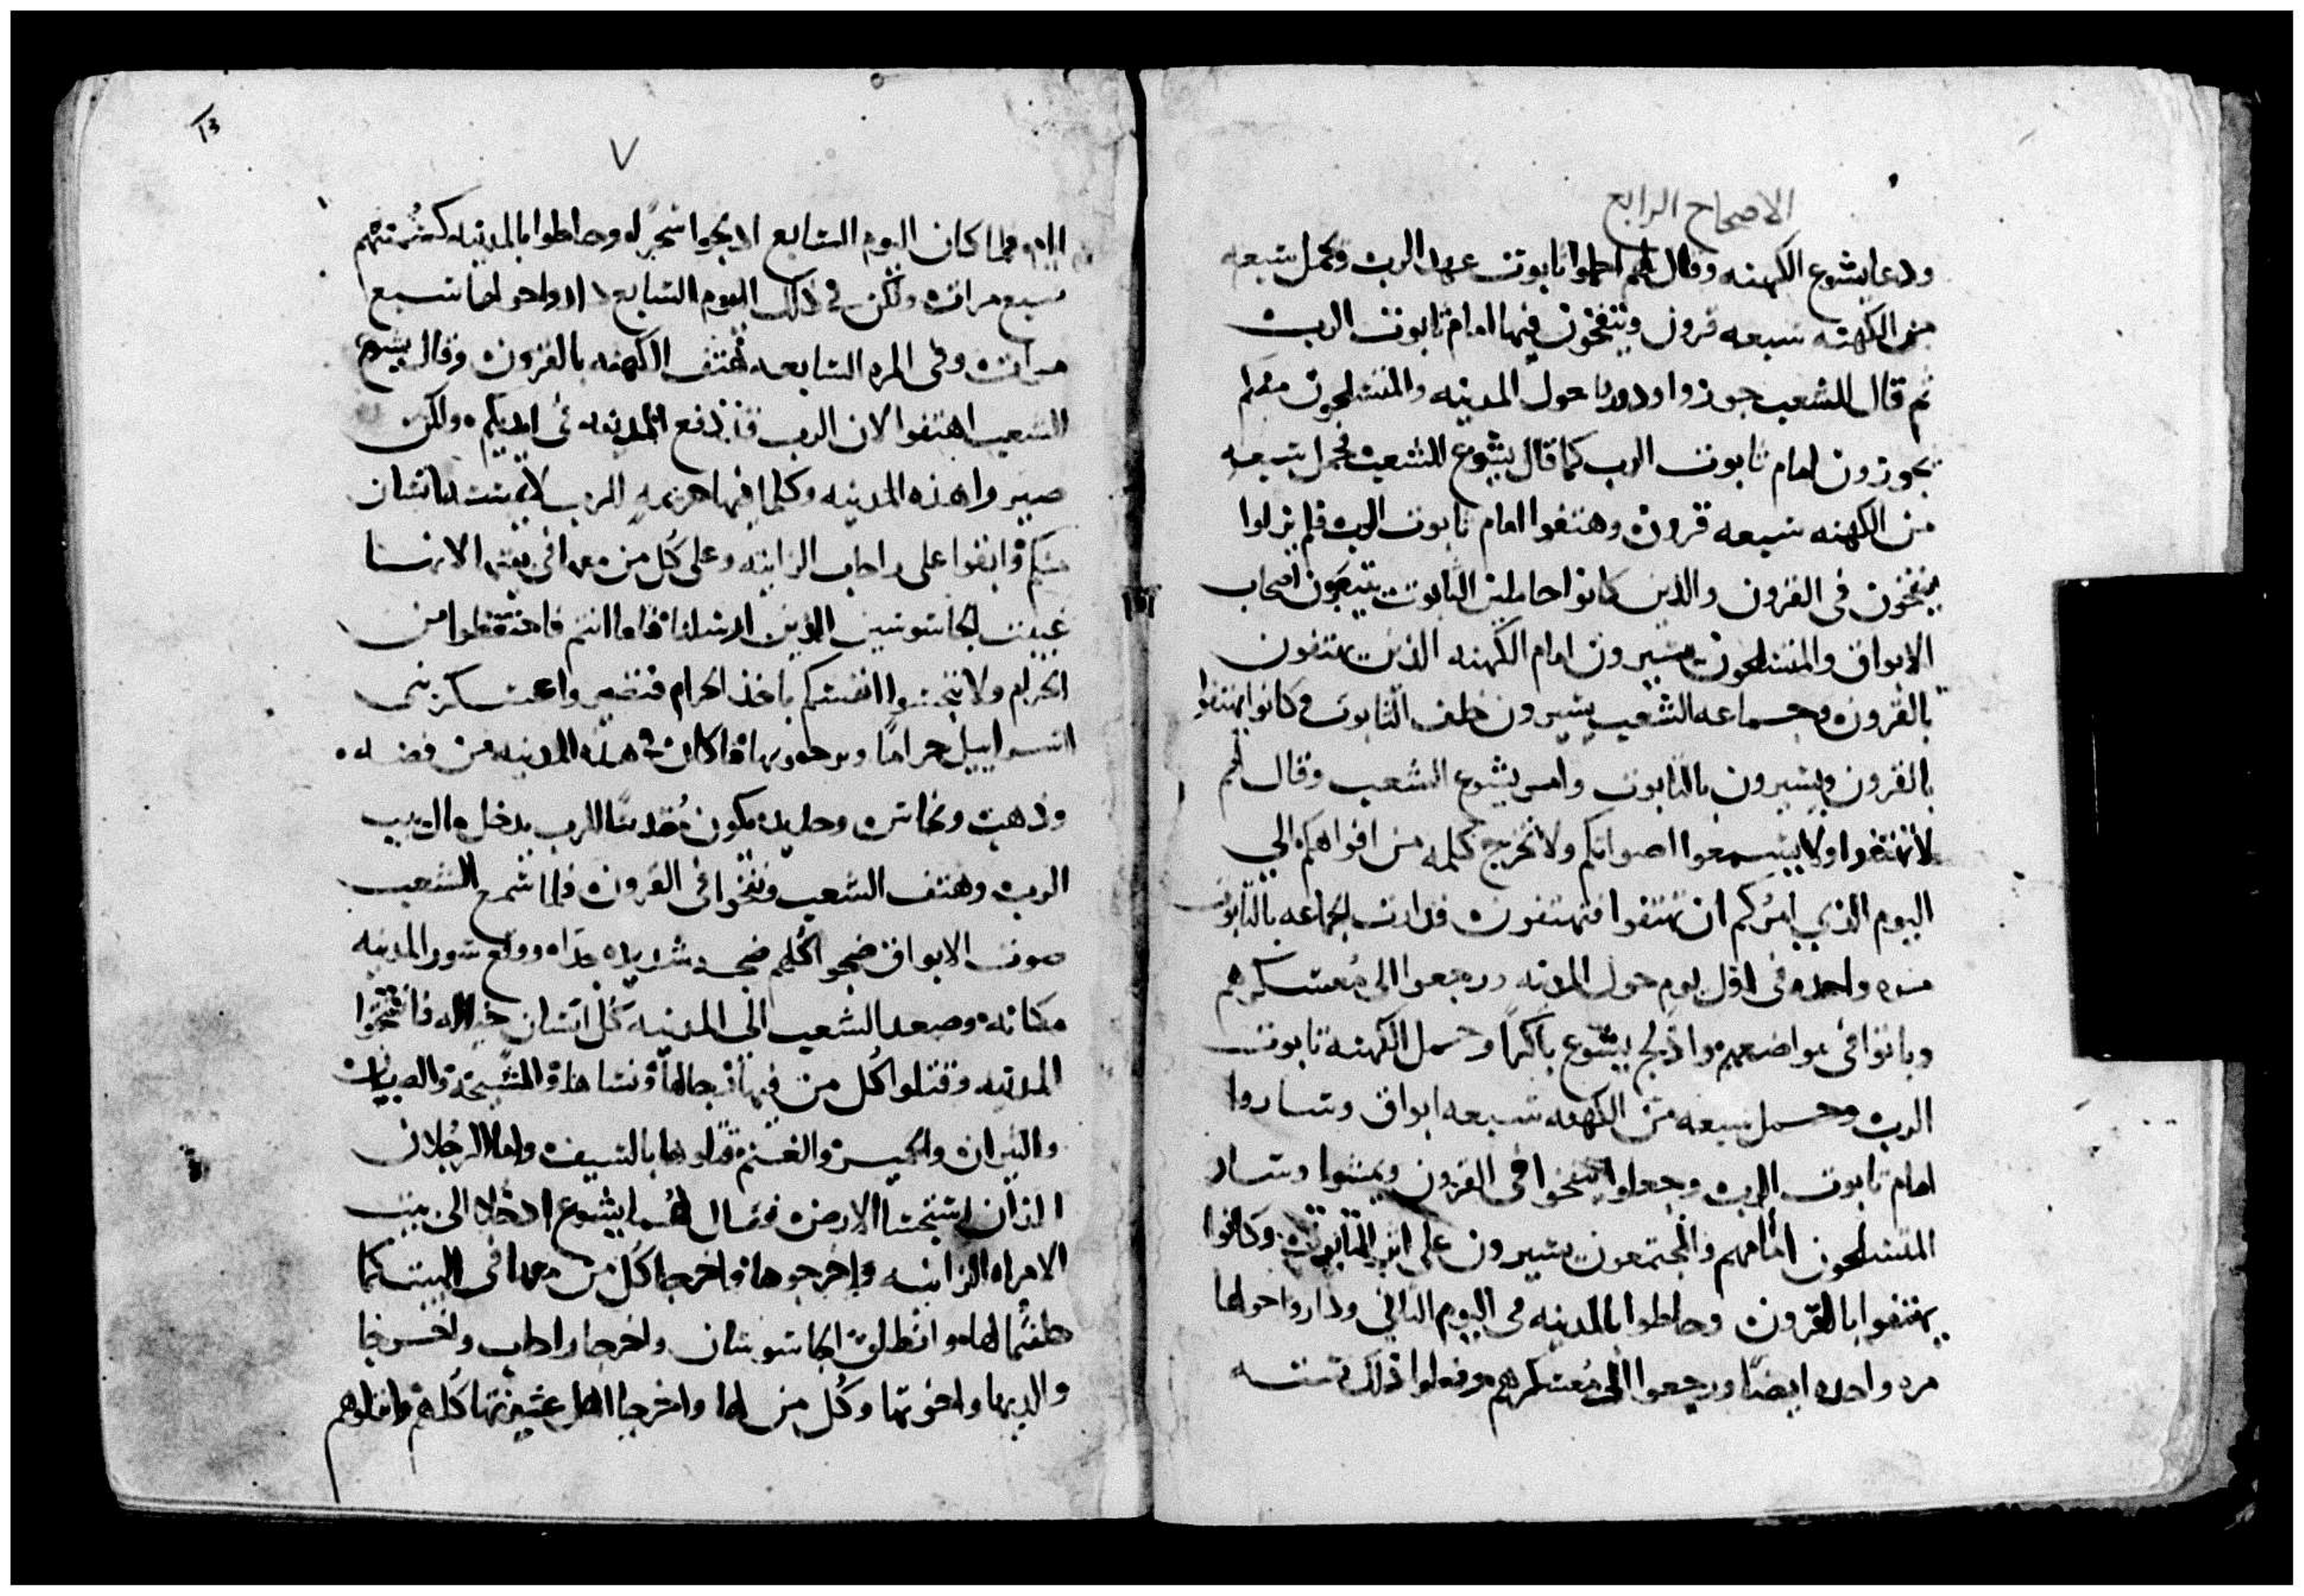 الاصحاح الرابع
ودعا يشوع الكهنه وقال لهم احملوا تابوت عهد الرب وتحمل سبعه
من الكهنه سبعه قرون وينفخون فيها امام تابوت الرب
ثم قال للشعب جوزوا ودوروا حول المدينه والمتسلحون منكم
يجوزون امام تابوت الرب كما قال يشوع للشعب فحمل سبعه
من الكهنه سبعه قرون وهتفوا امام تابوت الرب فلم يزلوا
ينفخون في القرون والذين كانوا حاملين التابوت يتبعون اصحاب
الابواق والمتسلحون يسيرون امام الكهنه الذين يهتفون
بالقرون وجماعه الشعب يسيرون خلف التابوت وكانوا يهتفوا
بالقرون ويسيرون بالتابوت وامر يشوع الشعب وقال لهم
لا تهتفوا ولا يسمعوا اصواتكم ولا تخرج كلمه من افواهكم الي
اليوم الذي امركم ان تهتفوا فتهتفون فدارت الجماعه بالتابوت
مره واحده في اول يوم حول المدينه ورجعوا الى معسكرهم
وباتوا في مواضعهم وادلج يشوع باكرًا وحمل الكهنه تابوت
الرب وحمل سبعه من الكهنه سبعه ابواق وساروا
امام تابوت الرب وجعلوا ينفخوا في القرون ويمشوا وسار
المتسلحون امامهم والمجتمعون يسيرون على اثر التابوت وكانوا
يهتفوا بالقرون وحاطوا بالمدينه في اليوم الثاني وداروا حولها
مره واحده ايضًا ورجعوا الى معسكرهم وفعلوا ذلك ستته
٧
13
ايام فلما كان اليوم السابع ادلجوا سحرًا وحاطوا بالمدينه كسنتهم
سبع مرات ولكن في ذلك اليوم السابع داروا حولها سبع
مرات وفي المره السابعه هتف الكهنه بالقرون وقال يشوع
للشعب اهتفوا لان الرب قد دفع المدينه في ايديكم ولكن
صيروا هذه المدينه وكلما فيها حرمه للرب
منكم وابقوا على راحاب الزانيه وعلى كل من معها في بيتها لانها
غيبت الجاسوسين الذين ارسلنا فاما انتم فاحتفظوا من
الحرام ولا تنجسوا انفسكم باخذ الحرام فتصيروا عسكر بني
اسراييل حرامًا فما كان في هذه المدينه من فضه
وذهب ونحاس وحديد يكون مقدسًا للرب يدخل مال بيت
الرب وهتف الشعب ونفخوا في القرون فلما سمع الشعب
صوت الابواق ضجوا كلهم ضجه شديده جدا ووقع سور المدينه
مكانه وصعد الشعب الى المدينه كل انسان حياله فافتتحوا
المدينه وقتلوا كل من فيها رجالها ونساها والمشيخه والصبيان
والثيران والحمير والغنم قتلوها بالسيف واما الرجلان
الذان استجسا الارض فقال لهما يشوع ادخلا الى بيت
الامراه الزانيه واخرجوها واخرجا كل من معها في البيت كما
حلفتما لها وانطلق الجاسوسان واخرجا راحاب واخرجا
والديها واخوتها وكل من لها واخرجا اهل عشيرتها كلهم وانزلوهم